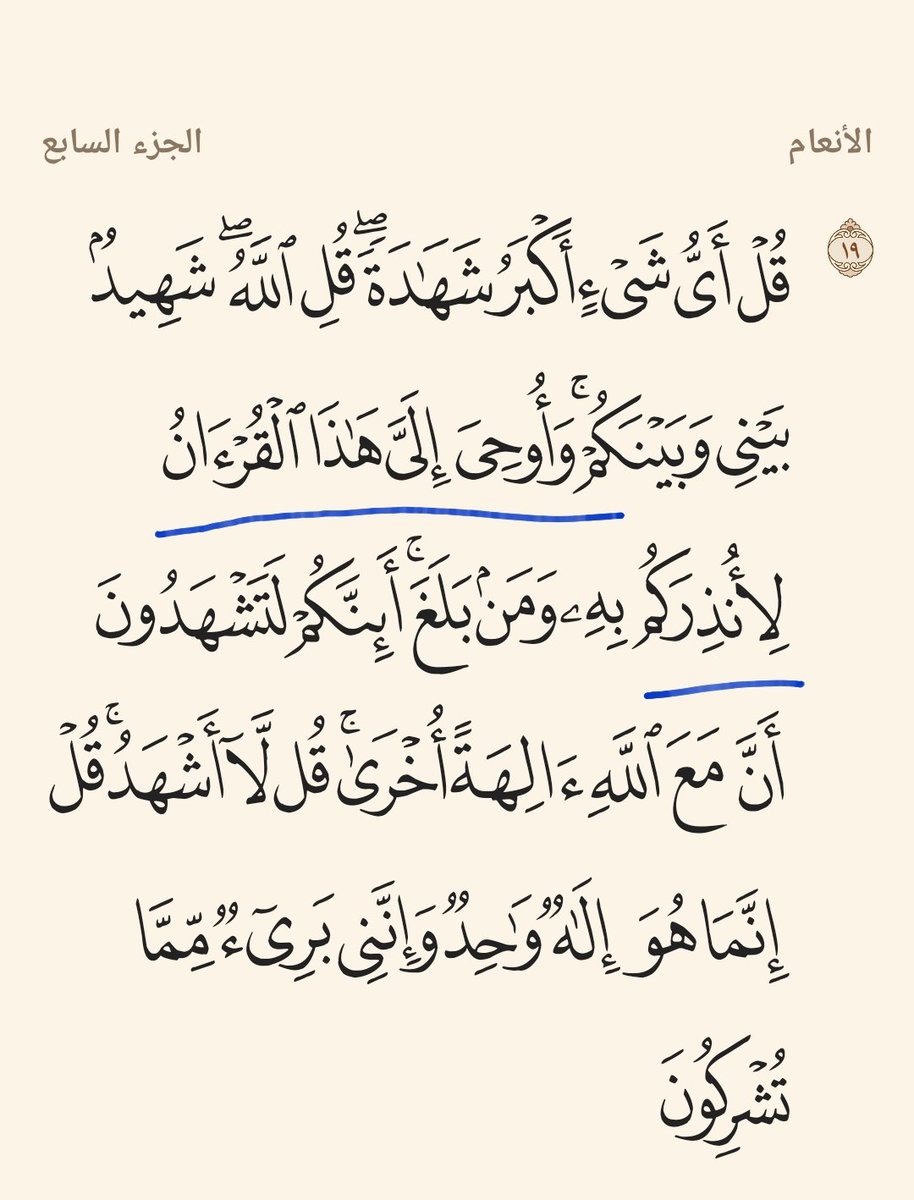 الأنعام
الجزء السابع
١٩
قُلۡ أَىُّ شَىۡءٍ أَكۡبَرُ شَهَٰدَةٗۖ قُلِ ٱللَّهُۖ شَهِيدُۢ
بَيۡنِى وَبَيۡنَكُمۡۚ وَأُوحِىَ إِلَىَّ هَٰذَا ٱلۡقُرۡءَانُ
لِأُنذِرَكُم بِهِۦ وَمَنۢ بَلَغَۚ أَئِنَّكُمۡ لَتَشۡهَدُونَ
أَنَّ مَعَ ٱللَّهِ ءَالِهَةً أُخۡرَىٰۚ قُل لَّآ أَشۡهَدُۚ قُلۡ
إِنَّمَا هُوَ إِلَٰهٞ وَٰحِدٞ وَإِنَّنِى بَرِىٓءٞ مِّمَّا
تُشۡرِكُونَ